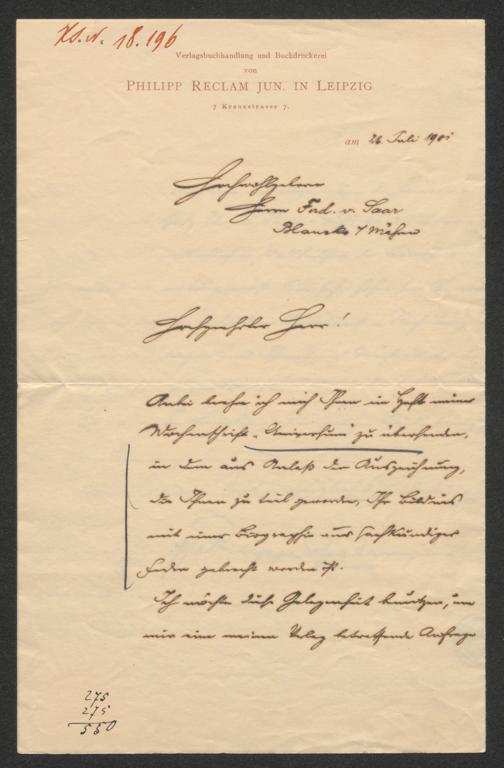 H.S.N. 18.196
Verlagsbuchhandlung und Buchdruckerei
von
PHILIPP RECLAM JUN. IN LEIPZIG
7 Kreuzstrasse 7.
am 26 Juli 1901
Hochwohlgeboren
Herrn Ferd. v. Saar
Blansko / Mähren
Hochgeehrter Herr!
Anbei beehre ich mich Ihnen ein Heft meiner
Wochenschrift „Universum" zu übersenden,
in dem aus Anlaß der Auszeichnung,
die Ihnen zu teil geworden, Ihr Bildnis
mit einer Biographie aus sachkundiger
Feder gebracht worden ist.
Ich möchte diese Gelegenheit benutzen, um
mir eine meinen Verlag betreffende Anfrage
275
275
550